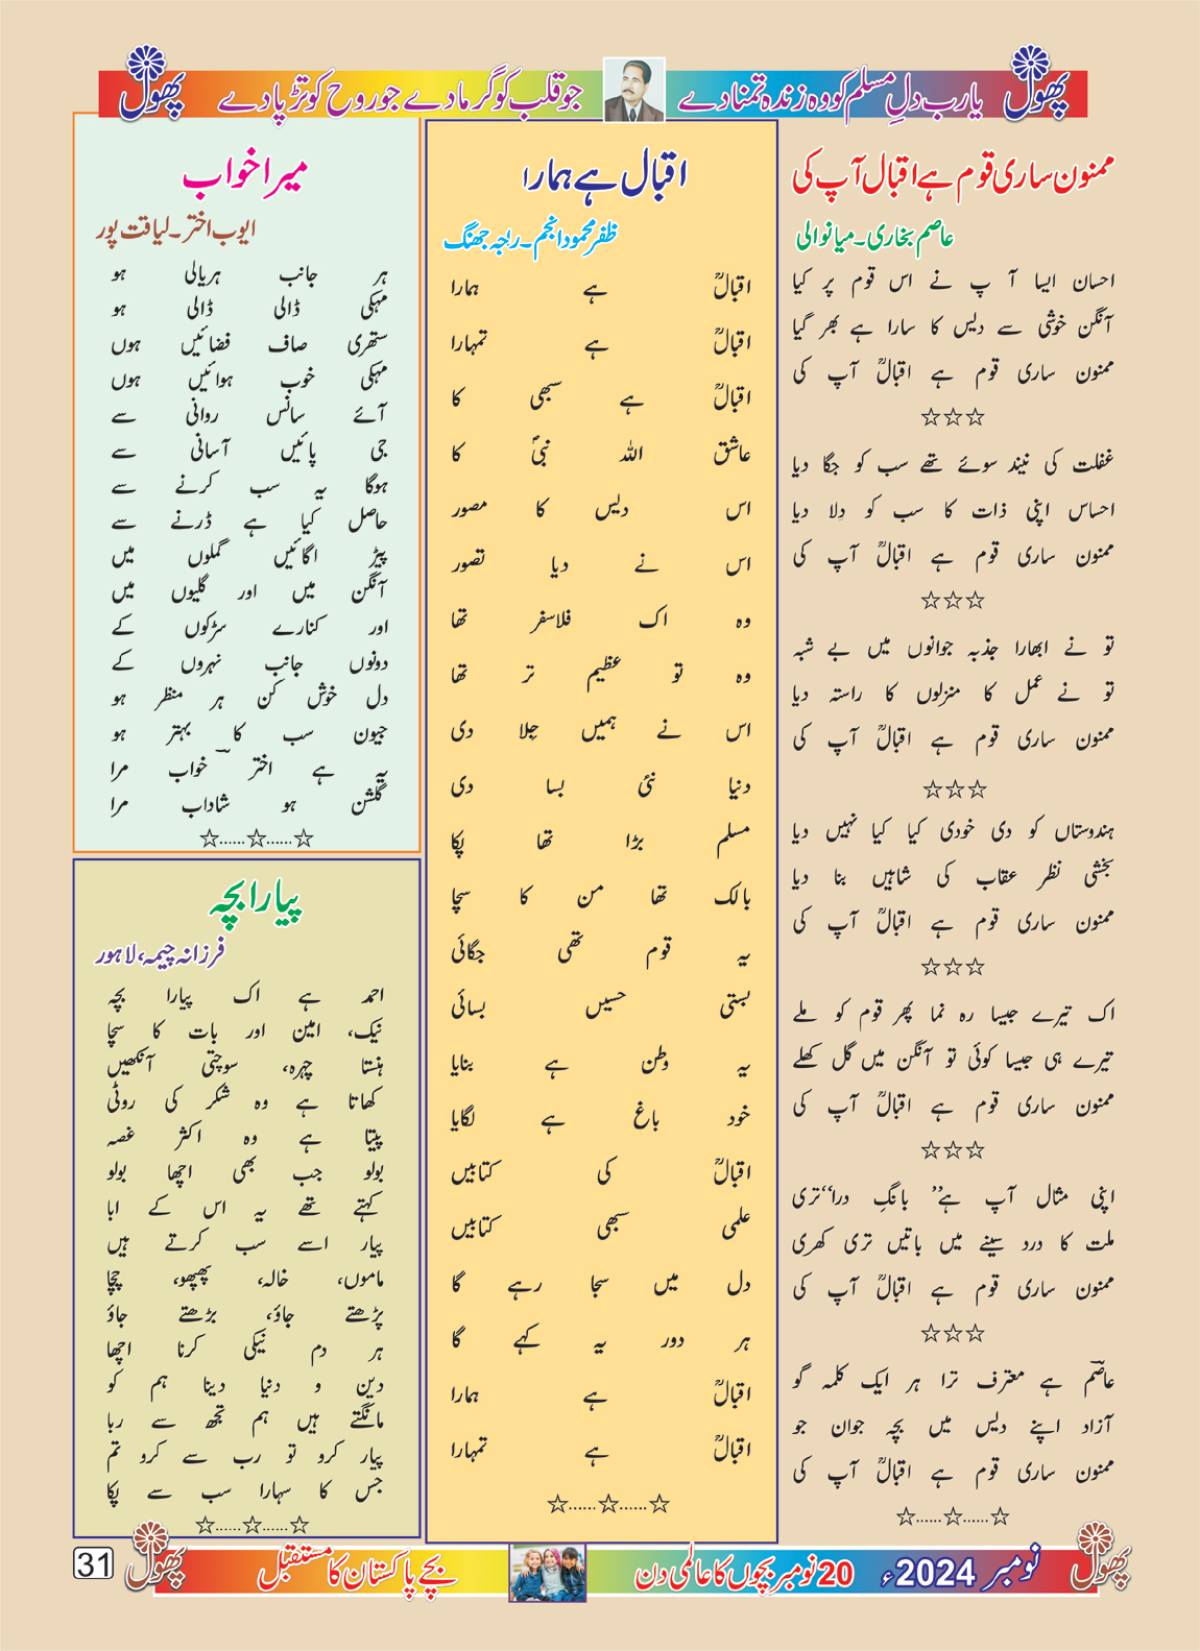 پھول
یارب دلِ مسلم کو وہ زندہ تمنا دے
جو قلب کو گرما دے جو روح کو تڑپا دے
پھول
ممنون ساری قوم ہے اقبال آپ کی
عاصم بخاری۔میانوالی
احسان ایسا آپ نے اس قوم پر کیا
آنگن خوشی سے دیس کا سارا ہے بھر گیا
ممنون ساری قوم ہے اقبالؒ آپ کی
☆☆☆
غفلت کی نیند سوئے تھے سب کو جگا دیا
احساس اپنی ذات کا سب کو دِلا دیا
ممنون ساری قوم ہے اقبالؒ آپ کی
☆☆☆
تو نے ابھارا جذبہ جوانوں میں بے شبہ
تو نے عمل کا منزلوں کا راستہ دیا
ممنون ساری قوم ہے اقبالؒ آپ کی
☆☆☆
ہندوستاں کو دی خودی کیا کیا نہیں دیا
بخشی نظر عقاب کی شاہیں بنا دیا
ممنون ساری قوم ہے اقبالؒ آپ کی
☆☆☆
اک تیرے جیسا رہ نما پھر قوم کو ملے
تیرے ہی جیسا کوئی تو آنگن میں گل کھلے
ممنون ساری قوم ہے اقبالؒ آپ کی
☆☆☆
اپنی مثال آپ ہے’’ بانگِ درا‘‘تری
ملت کا درد سینے میں باتیں تری کھری
ممنون ساری قوم ہے اقبالؒ آپ کی
☆☆☆
عاصمؔ ہے معترف ترا ہر ایک کلمہ گو
آزاد اپنے دیس میں بچہ جوان جو
ممنون ساری قوم ہے اقبالؒ آپ کی
☆......☆......☆
اقبال ہے ہمارا
ظفر محمود انجم۔راجہ جھنگ
اقبالؒ ہے ہمارا
اقبالؒ ہے تمہارا
اقبالؒ ہے سبھی کا
عاشق اللہ نبیؐ کا
اس دیس کا مصور
اس نے دیا تصور
وہ اک فلاسفر تھا
وہ تو عظیم تر تھا
اس نے ہمیں جِلا دی
دنیا نئی بسا دی
مسلم بڑا تھا پکا
بالک تھا من کا سچا
یہ قوم تھی جگائی
بستی حسیں بسائی
یہ وطن ہے بنایا
خود باغ ہے لگایا
اقبالؒ کی کتابیں
علمی سبھی کتابیں
دل میں سجا رہے گا
ہر دور یہ کہے گا
اقبالؒ ہے ہمارا
اقبالؒ ہے تمہارا
☆......☆......☆
میرا خواب
ایوب اختر۔لیاقت پور
ہر جانب ہریالی ہو
مہکی ڈالی ڈالی ہو
ستھری صاف فضائیں ہوں
مہکی خوب ہوائیں ہوں
آئے سانس روانی سے
جی پائیں آسانی سے
ہوگا یہ سب کرنے سے
حاصل کیا ہے ڈرنے سے
پیڑ اگائیں گملوں میں
آنگن میں اور گلیوں میں
اور کنارے سڑکوں کے
دونوں جانب نہروں کے
دل خوش کن ہر منظر ہو
جیون سب کا بہتر ہو
یہ ہے اخترؔ خواب مرا
گلشن ہو شاداب مرا
☆......☆......☆
پیارا بچہ
فرزانہ چیمہ، لاہور
احمد ہے اک پیارا بچہ
نیک، امین اور بات کا سچا
ہنستا چہرہ، سوچتی آنکھیں
کھاتا ہے وہ شکر کی روٹی
پیتا ہے وہ اکثر غصہ
بولو جب بھی اچھا بولو
کہتے تھے یہ اس کے ابا
پیار اسے سب کرتے ہیں
ماموں، خالہ، پھپھو، چچا
پڑھتے جاؤ، بڑھتے جاؤ
ہر دم نیکی کرنا اچھا
دین و دنیا دینا ہم کو
مانگتے ہیں ہم تجھ سے ربا
پیار کرو تو رب سے کرو تم
جس کا سہارا سب سے پکا
☆......☆......☆
پھول
نومبر 2024ء
20 نومبر بچوں کا عالمی دن
بچے پاکستان کا مستقبل
پھول
31